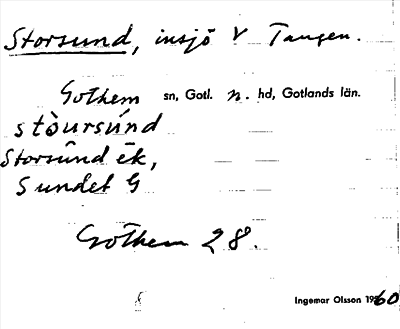 Storsund, insjö V Tangen.
Gothem sn, Gotl. n. hd, Gotlands län.
stòursúnd
Storsund ék,
Sundet G
Gothem 28.
Ingemar Olsson 1960